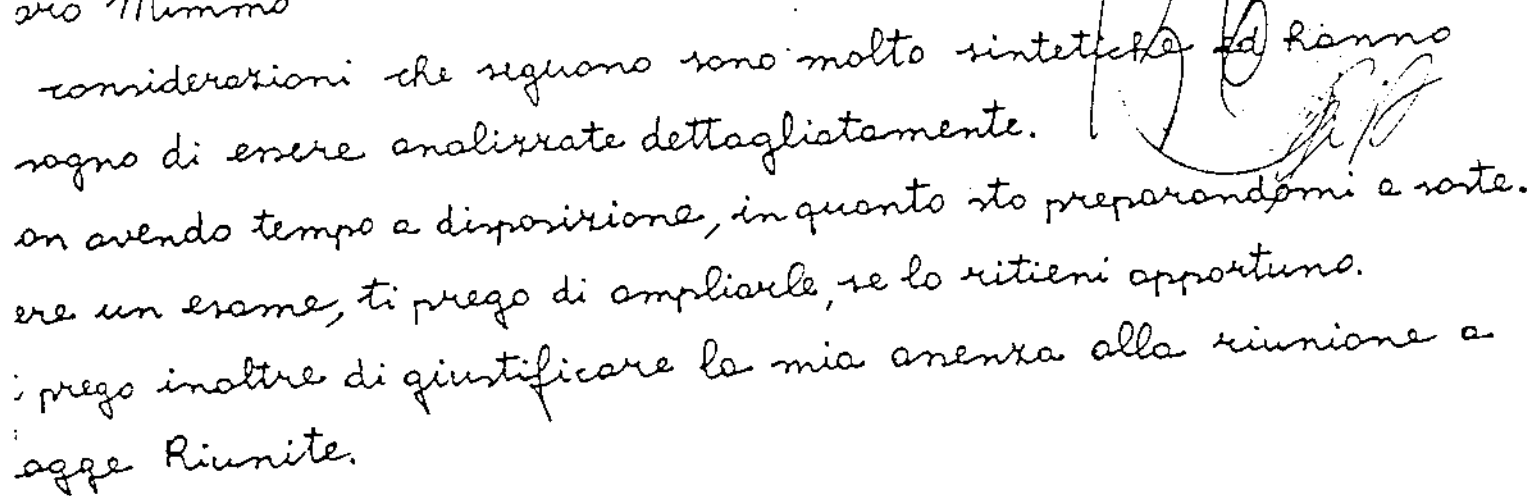 aro Mimmo
considerazioni che seguono sono molto sintetiche ed hanno
sogno di essere analizzate dettagliatamente.
on avendo tempo a disposizione, in quanto sto preparandomi a soste.
ere un esame, ti prego di ampliarle, se lo ritieni opportuno.
i prego inoltre di giustificare la mia assenza alla riunione a
agge Riunite.